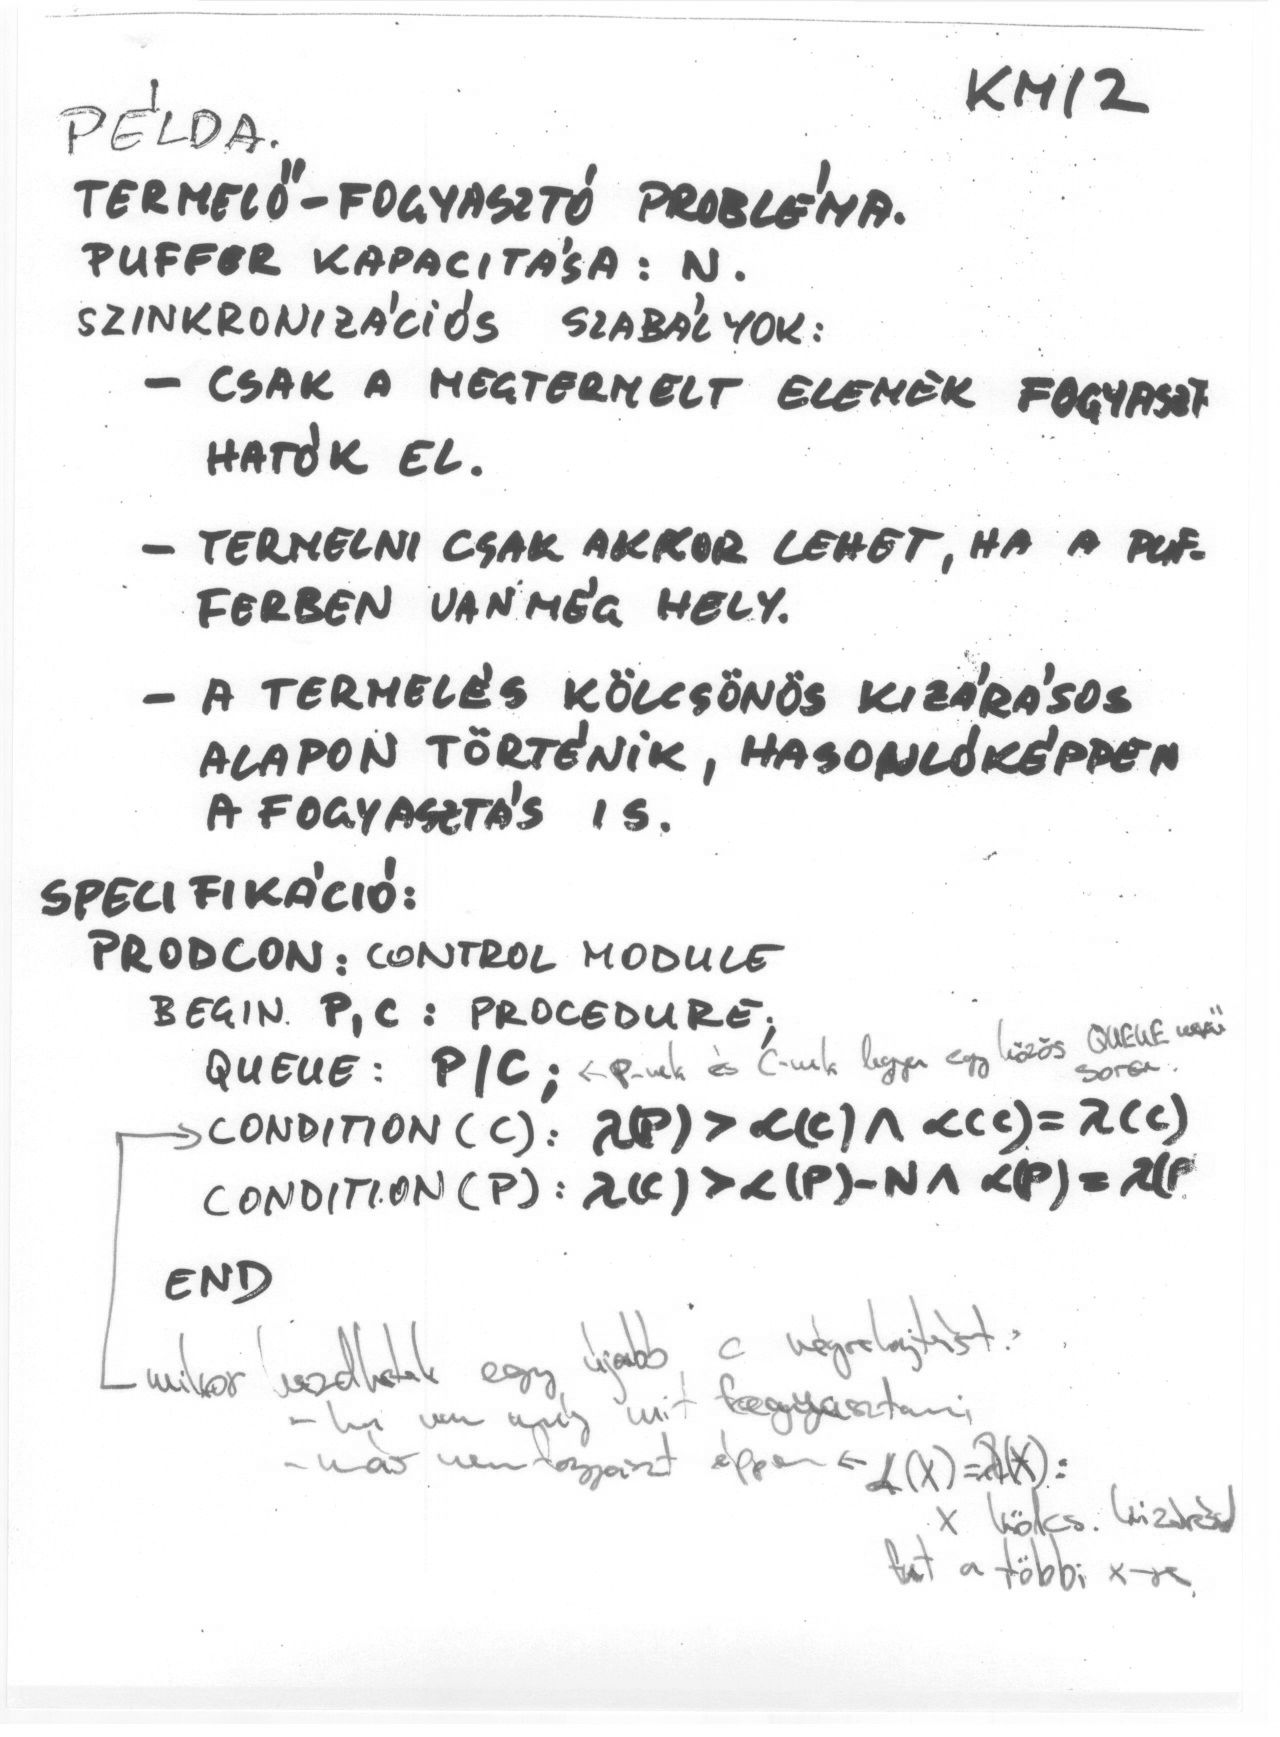 KM/2
PÉLDA.
TERMELŐ-FOGYASZTÓ PROBLÉMA.
PUFFER KAPACITÁSA: N.
SZINKRONIZÁCIÓS SZABÁLYOK:
- CSAK A MEGTERMELT ELEMEK FOGYASZT
HATÓK EL.
- TERMELNI CSAK AKKOR LEHET, HA A PUF-
FERBEN VAN MÉG HELY.
- A TERMELÉS KÖLCSÖNÖS KIZÁRÁSOS
ALAPON TÖRTÉNIK, HASONLÓKÉPPEN
A FOGYASZTÁS IS.
SPECIFIKÁCIÓ:
PRODCON: CONTROL MODULE
BEGIN P, C: PROCEDURE;
QUEUE: P/C; ← P-nek és C-nek legyen egy közös QUEUE nevű
sora.
CONDITION(C): λ(P) > α(C) ∧ α(C) = λ(C)
CONDITION(P): λ(C) > α(P)-N ∧ α(P) = λ(P
END
mikor kezdhetek egy újabb C végrehajtást?
- ha van még mit fogyasztani
- már nem fogyaszt éppen ← α(X) = λ(X):
X kölcs. kizárással
fut a többi x-re.